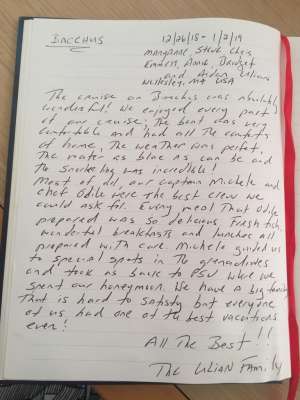 BACCHUS 12/26/18 - 1/2/19
Maryanne, Steve, Chris
Emmett, Annie, Bridget
and Aidan Ulian
Wellesley, MA USA
The cruise on Bacchus was absolutely
wonderful! We enjoyed every part
of our cruise. The boat was very
comfortable and had all the comforts
of home, The weather was perfect,
The water as blue as can be and
the snorkeling was incredible!
Most of all, our captain Michele and
chef Odile were the best crew we
could ask for. Every meal that Odile
prepared was so delicious. Fresh fish,
wonderful breakfasts and lunches all
prepared with care. Michele guided us
to special spots in the grenadines
and took us back to PSV where we
spent our honeymoon. We have a big family
That is hard to satisfy but everyone
of us had one of the best vacations
ever!
All The Best!!
The Ulian Family